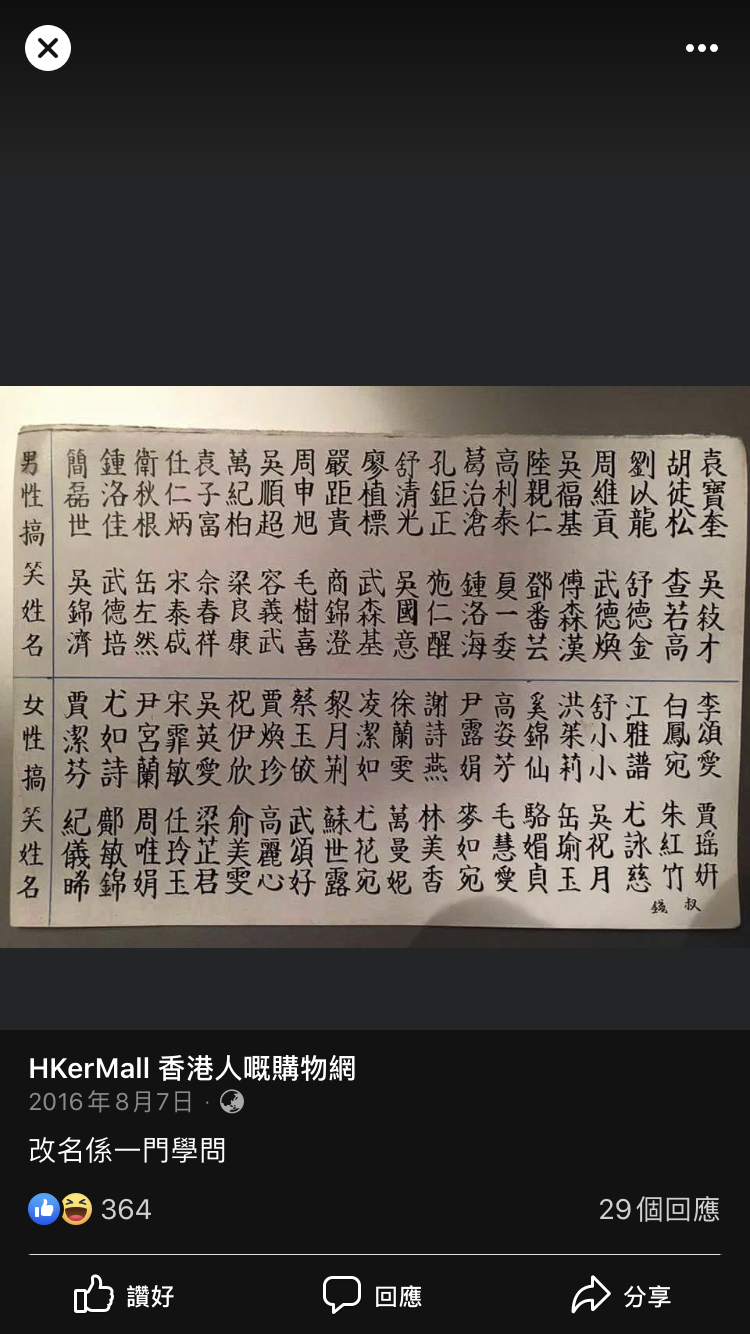 男性搞笑姓名
簡磊世
鍾洛佳
衛秋根
任仁炳
袁子富
萬紀柏
吳順超
周申旭
嚴距貴
廖植標
舒清光
孔鉅正
葛治滄
高利泰
陸親仁
吳福基
周維貢
劉以龍
胡徒松
袁寶奎
吳錦濟
武德培
缶左然
宋泰戙
佘春祥
梁良康
容義武
毛樹喜
商錦澄
武森基
吳國意
施仁醒
鍾洛海
夏一委
鄧番芸
傅森漢
武德煥
舒德金
查若高
吳敍才
女性搞笑姓名
賈潔芬
尤如詩
尹宮蘭
宋霏敏
吳英愛
祝伊欣
賈煥珍
蔡玉皎
黎月荊
凌潔如
徐蘭雯
謝詩燕
尹露娟
高姿芳
奚錦仙
洪茱莉
舒小小
江雅譜
白鳳宛
李頌愛
紀儀晞
鄺敏錦
周唯娟
任玲玉
梁芷君
俞美雯
高麗心
武頌好
蘇世露
尤花宛
萬曼妮
林美香
麥如宛
毛慧愛
駱媚貞
缶瑜玉
吳祝月
尤詠慈
朱紅竹
賈瑤妍
錢叔
HKerMall 香港人嘅購物網
2016年8月7日 ·
改名係一門學問
364
29個回應
讚好
回應
分享